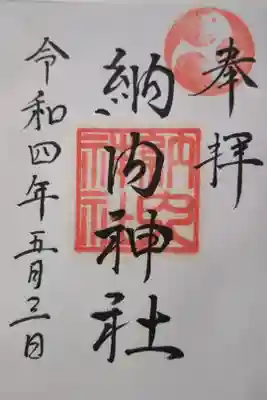 奉拝
納内神社
令和四年五月三日